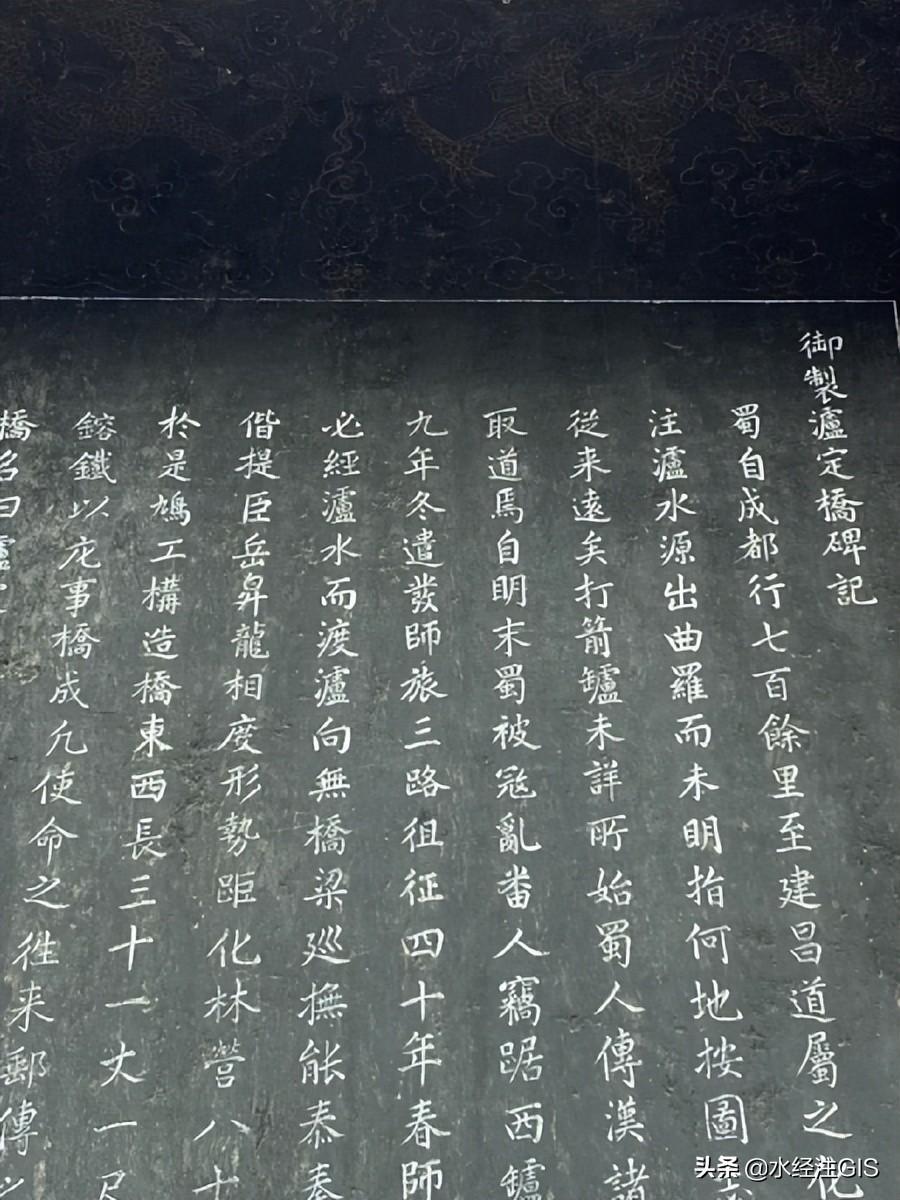 御製瀘定橋碑記
蜀自成都行七百餘里至建昌道屬之化
注瀘水源出曲羅而未明指何地按圖
従来逺矣打箭鑪未詳所始蜀人傳漢諸
取道焉自明末蜀被冦亂畨人竊踞西鑪
九年冬遣發師旅三路徂征四十年春師
必經瀘水而渡瀘向無橋梁廵撫能泰奏
偕提臣岳昇龍相度形勢距化林營八十
於是鳩工構造橋東西長三十一丈一尺
鎔鐵以庀事橋成凢使命之徃来郵傳之
橋名曰瀘定
头条 @水经注GIS